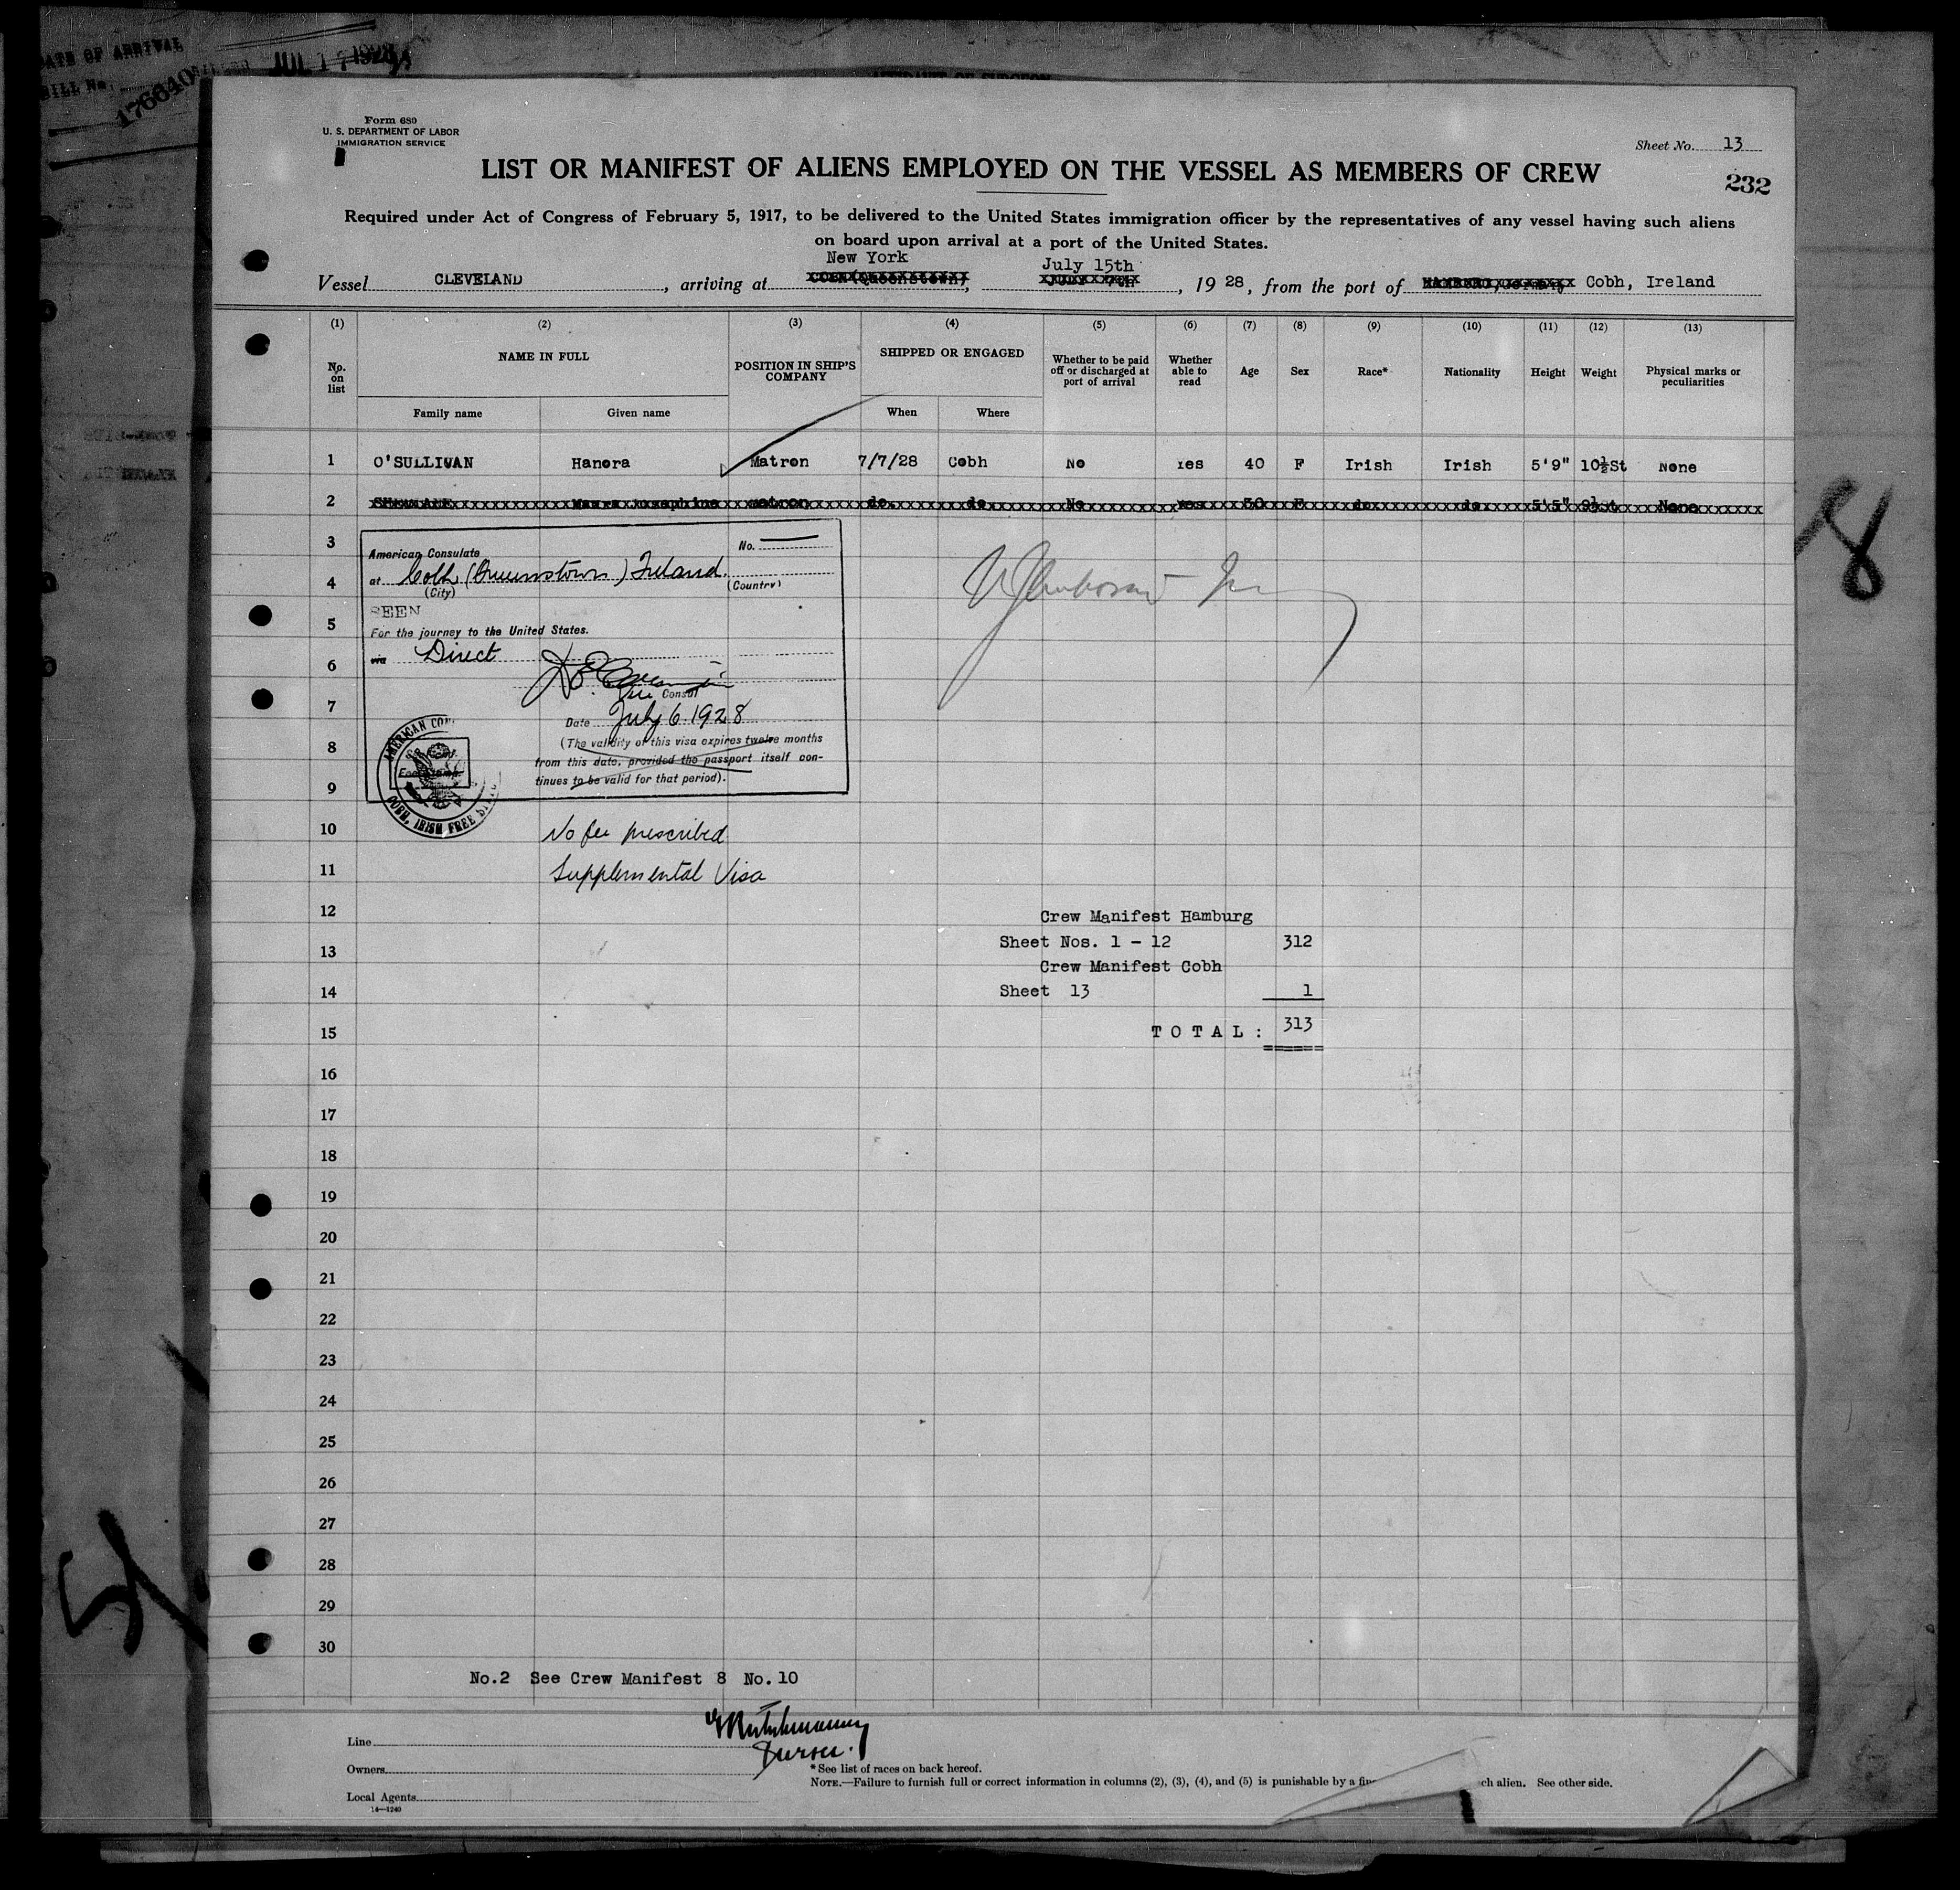 DATE OF ARRIVAL
BILL No.
176640
JUL 17 1928
AFFIDAVIT OF SURGEON
Form 680
U. S. DEPARTMENT OF LABOR
IMMIGRATION SERVICE
Sheet No. 13
LIST OR MANIFEST OF ALIENS EMPLOYED ON THE VESSEL AS MEMBERS OF CREW
232
Required under Act of Congress of February 5, 1917, to be delivered to the United States immigration officer by the representatives of any vessel having such aliens
on board upon arrival at a port of the United States.
New York July 15th
Vessel CLEVELAND, arriving at COBH(Queenstown), JULY 7th, 1928, from the port of HAMBURG,Germany Cobh, Ireland
(1) (2) (3) (4) (5) (6) (7) (8) (9) (10) (11) (12) (13)
No. on list NAME IN FULL POSITION IN SHIP'S COMPANY SHIPPED OR ENGAGED Whether to be paid off or discharged at port of arrival Whether able to read Age Sex Race* Nationality Height Weight Physical marks or peculiarities
Family name Given name When Where
1 O'SULLIVAN Hanora Matron 7/7/28 Cobh No Yes 40 F Irish Irish 5'9" 10½St None
2 Josephine matron do. do. No Yes 30 F do. do. 5'5" 9½St None
3
4
5
6
7
8
9
American Consulate No.
at Cobh (Queenstown) Ireland.
(City) (Country)
SEEN
For the journey to the United States.
via Direct
Vice Consul
Date July 6 1928
(The validity of this visa expires twelve months
from this date, provided the passport itself con-
tinues to be valid for that period).
AMERICAN CON
COBH, IRISH FREE ST
10 No fee prescribed
11 Supplemental Visa
12 Crew Manifest Hamburg
13 Sheet Nos. 1 - 12 312
Crew Manifest Cobh
14 Sheet 13 1
15 TOTAL: 313
16
17
18
19
20
21
22
23
24
25
26
27
28
29
30
No.2 See Crew Manifest 8 No.10
Line
Purser.
Owners
*See list of races on back hereof.
NOTE.—Failure to furnish full or correct information in columns (2), (3), (4), and (5) is punishable by a fin ch alien. See other side.
Local Agents
14—1240
8